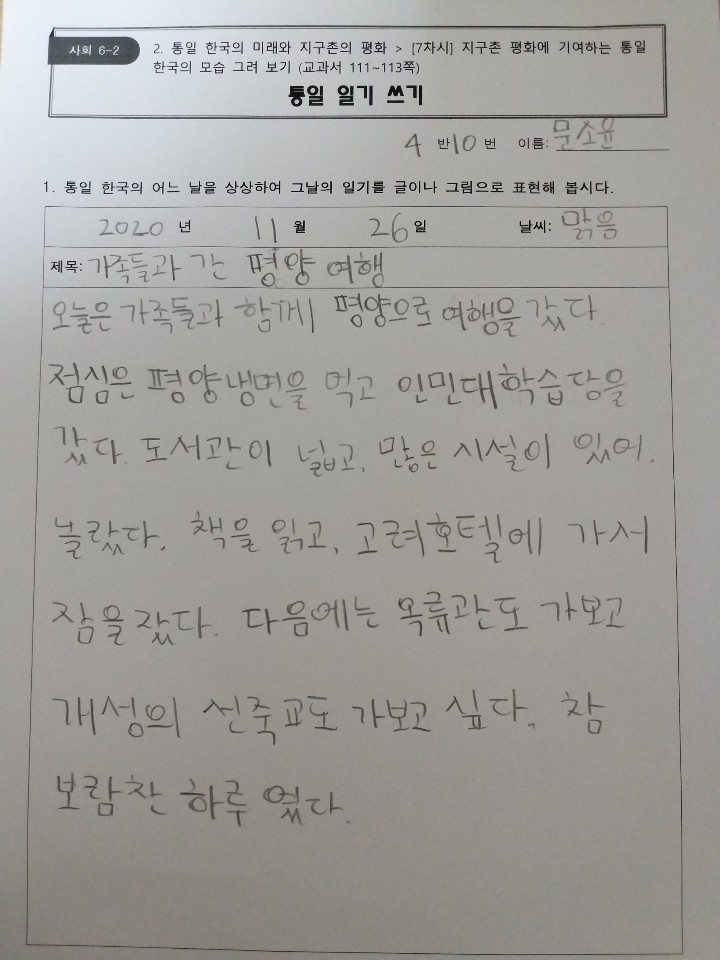 사회 6-2
2. 통일 한국의 미래와 지구촌의 평화 > [7차시] 지구촌 평화에 기여하는 통일
한국의 모습 그려 보기 (교과서 111~113쪽)
통일 일기 쓰기
4 반 10 번 이름: 문소윤
1. 통일 한국의 어느 날을 상상하여 그날의 일기를 글이나 그림으로 표현해 봅시다.
2020 년 11 월 26 일 날씨: 맑음
제목: 가족들과 간 평양 여행
오늘은 가족들과 함께 평양으로 여행을 갔다.
점심은 평양냉면을 먹고 인민대학습당을
갔다. 도서관이 넓고, 많은 시설이 있어.
놀랐다. 책을 읽고, 고려호텔에 가서
잠을 잤다. 다음에는 옥류관도 가보고
개성의 선죽교도 가보고 싶다. 참
보람찬 하루 였다.